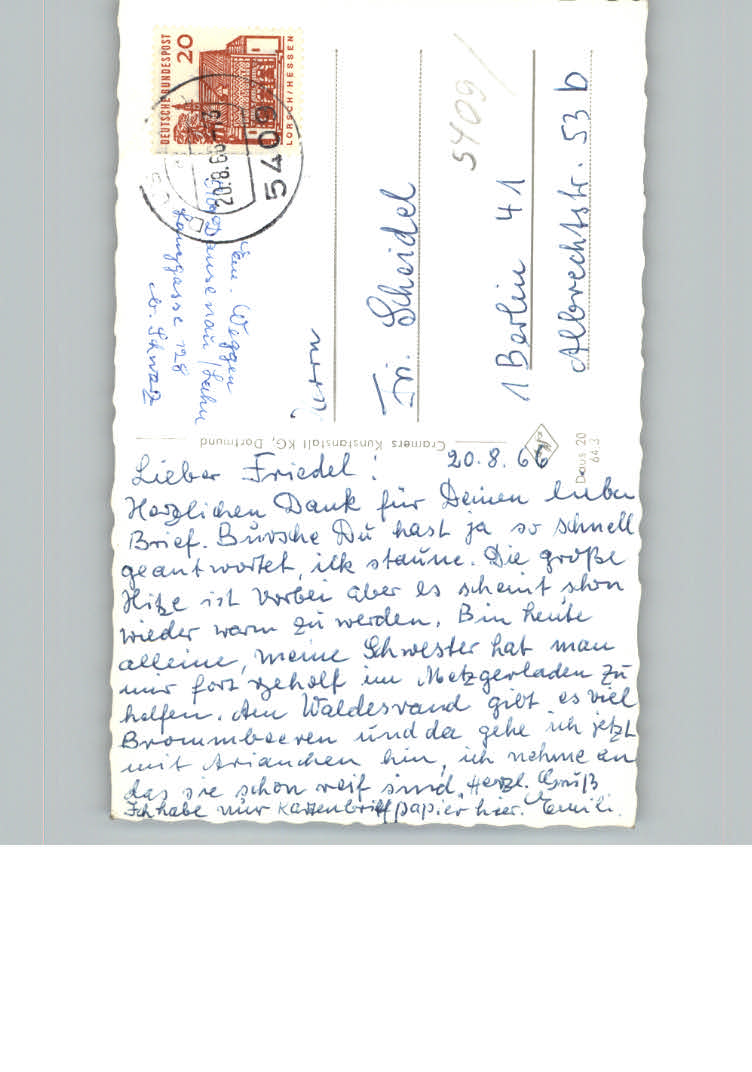 DEUTSCHE BUNDESPOST
20
LORSCH/HESSEN
5409
20.8.66
5409
Em. Weggen
Dausenau/Lahn
Langgasse 128
b. Schwarz
Herrn
Fr. Scheidel
1 Berlin 41
Albrechtstr. 53 b
Cramers Kunstanstalt KG, Dortmund
Daus 20
64.3
Lieber Friedel! 20.8.66
Herzlichen Dank für Deinen lieben
Brief. Bursche Du hast ja so schnell
geantwortet, ich staune. Die große
Hitze ist vorbei aber es scheint schon
wieder warm zu werden. Bin heute
alleine, meine Schwester hat man
mir fort geholt im Metzgerladen zu
helfen. Am Waldesrand gibt es viel
Brommbeeren und da gehe ich jetzt
mit Arianchen hin, ich nehme an
das sie schon reif sind. Herzl. Gruß
Ich habe nur Kartenbriefpapier hier. Emili.